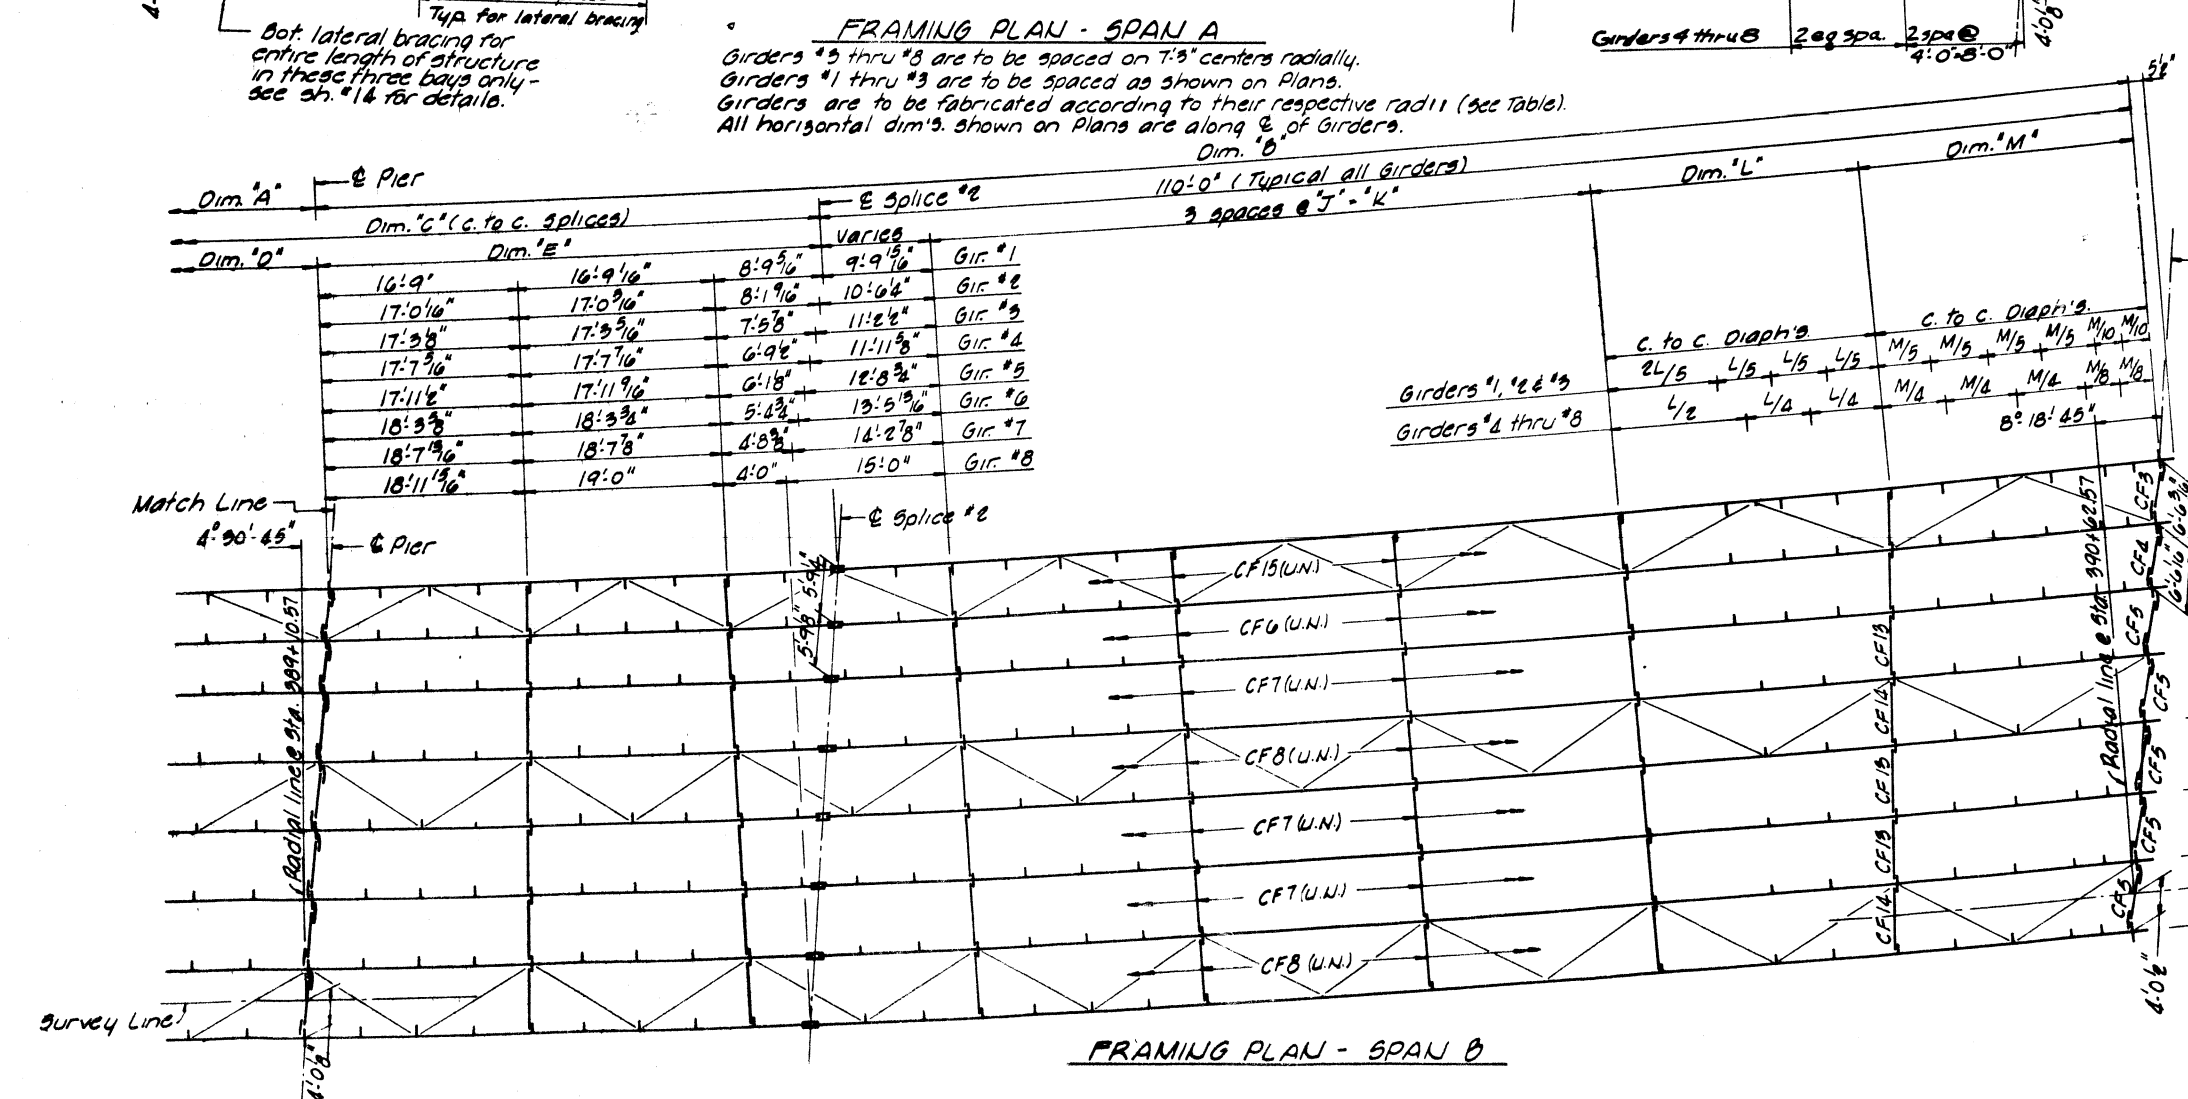 Typ. for lateral bracing
Bot. lateral bracing for
entire length of structure
in these three bays only-
see sh. #14 for details.
FRAMING PLAN - SPAN A
Girders #3 thru #8 are to be spaced on 7'-3" centers radially.
Girders #1 thru #3 are to be spaced as shown on Plans.
Girders are to be fabricated according to their respective radii (See Table).
All horizontal dim's. shown on Plans are along ℄ of Girders.
Girders 4 thru 8
2 eq spa.
2 spa @
4'-0"=8'-0"
5½"
Dim. "B"
Dim. "A"
℄ Pier
110'-0" (Typical all Girders)
Dim. "L"
Dim. "M"
Dim. "C" (c. to c. splices)
℄ Splice #2
3 spaces @ "J" = "K"
Dim. "D"
Dim. "E"
Varies
16'-9" 16'-9 1/16" 8'-9 5/16" 9'-9 15/16" Gir. #1
17'-0 1/16" 17'-0 3/16" 8'-1 9/16" 10'-6 1/4" Gir. #2
17'-3 1/8" 17'-3 5/16" 7'-5 7/8" 11'-2 1/2" Gir. #3
17'-7 5/16" 17'-7 7/16" 6'-9 1/2" 11'-11 5/8" Gir. #4
17'-11 1/2" 17'-11 9/16" 6'-1 1/8" 12'-8 3/4" Gir. #5
18'-3 5/8" 18'-3 3/4" 5'-4 3/4" 13'-5 13/16" Gir. #6
18'-7 13/16" 18'-7 7/8" 4'-8 3/8" 14'-2 7/8" Gir. #7
18'-11 15/16" 19'-0" 4'-0" 15'-0" Gir. #8
c. to c. Diaph's.
c. to c. Diaph's.
Girders #1, #2 & #3 2L/5 L/5 L/5 L/5 M/5 M/5 M/5 M/5 M/10 M/10
Girders #4 thru #8 L/2 L/4 L/4 M/4 M/4 M/4 M/8 M/8
8°-18'-45"
Match Line
4°-30'-45"
℄ Pier
℄ Splice #2
5'-9 1/8" 5'-9 1/4"
Radial line @ Sta. 389+10.57
Radial line @ Sta. 390+62.57
CF15 (U.N.)
CF6 (U.N.)
CF7 (U.N.)
CF8 (U.N.)
CF7 (U.N.)
CF7 (U.N.)
CF8 (U.N.)
CF13
CF14
CF13
CF13
CF14
CF3
CF4
CF5
CF5
CF5
CF5
CF5
6'-6 1/16" 6'-6 3/16"
4'-0½"
Survey Line
4'-0 1/8"
FRAMING PLAN - SPAN B